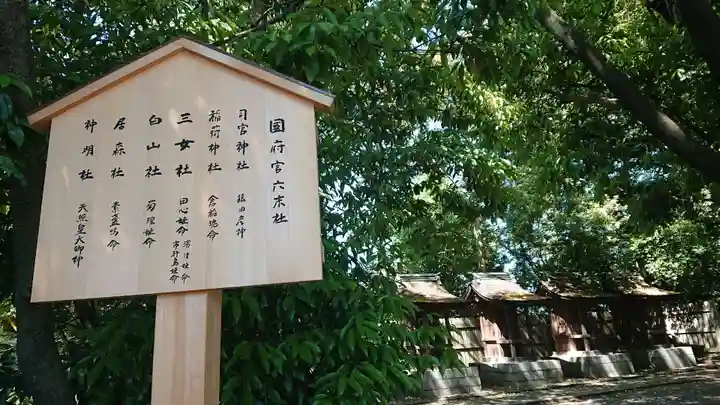 国府宮六末社
司宮神社 猿田彦神
稲荷神社 倉稲魂命
三女社 田心姫命 湍津姫命 市杵島姫命
白山社 菊理姫命
居森社 素盞嗚命
神明社 天照皇大御神